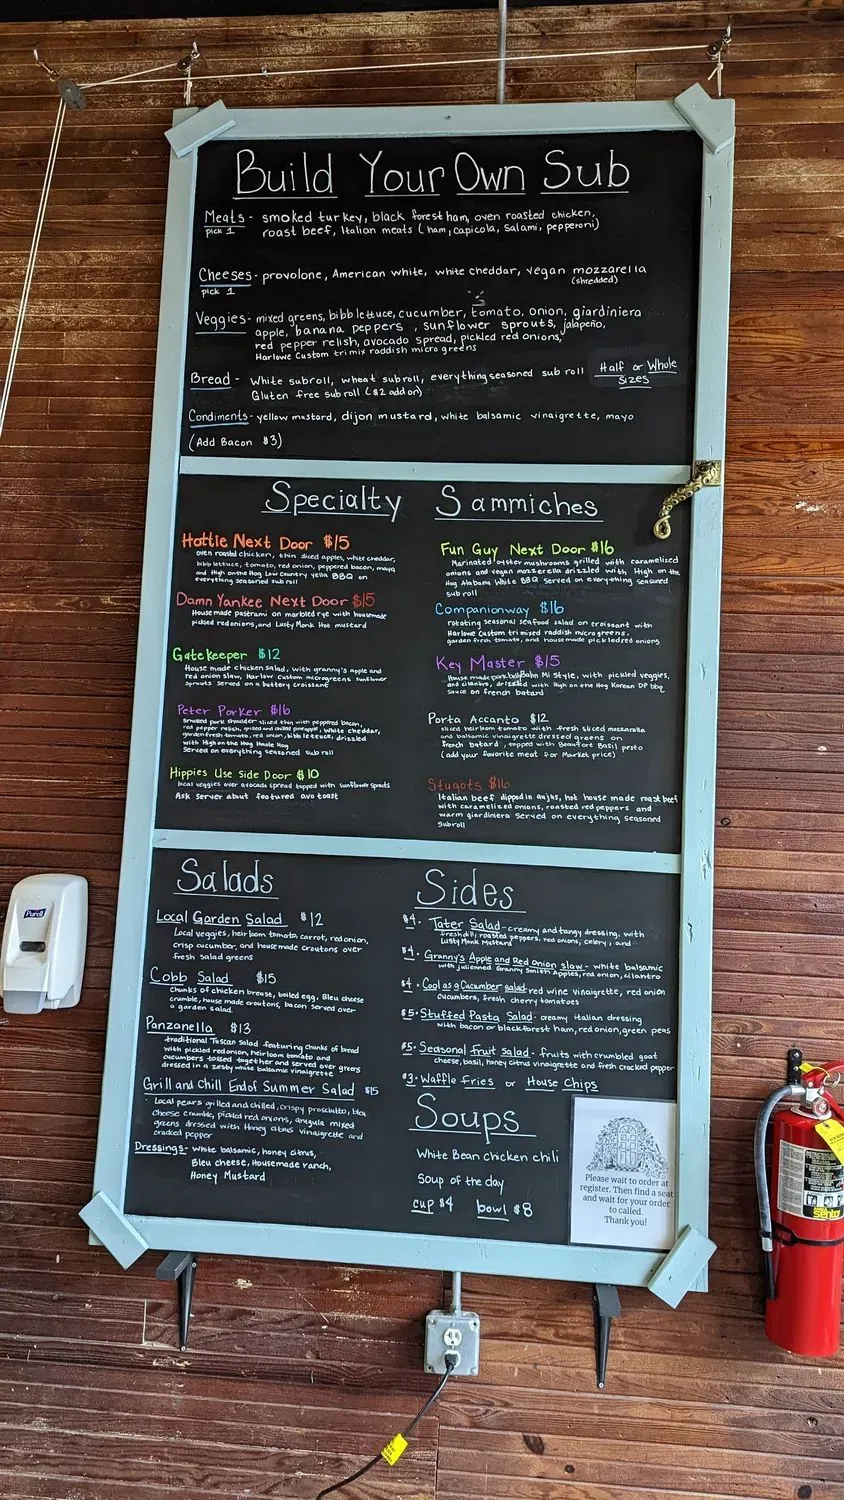 Build Your Own Sub
Meats - smoked turkey, black forest ham, oven roasted chicken,
pick 1
roast beef, Italian meats (ham, capicola, salami, pepperoni)
Cheeses - provolone, American white, white cheddar, vegan mozzarella
pick 1
(shredded)
Veggies - mixed greens, bibb lettuce, cucumber, tomato, onion, giardiniera
apple, banana peppers, sunflower sprouts, jalapeño,
red pepper relish, avocado spread, pickled red onions,
Harlowe Custom tri mix raddish micro greens
Bread - White subroll, wheat subroll, everything seasoned sub roll
Gluten free sub roll ($2 add on)
Half or Whole
Sizes
Condiments - yellow mustard, dijon mustard, white balsamic vinaigrette, mayo
(Add Bacon $3)
Specialty Sammiches
Hottie Next Door $15
oven roasted chicken, thin sliced apples, white cheddar,
bibb lettuce, tomato, red onion, peppered bacon, mayo
and High on the Hog Low Country yella BBQ on
everything seasoned sub roll
Damn Yankee Next Door $15
House made pastrami on marbled rye with housemade
pickled red onions, and Lusty Monk Hot mustard
Gatekeeper $12
House made chicken salad, with granny's apple and
red onion slaw, Harlow Custom microgreens sunflower
sprouts served on a buttery croissant
Peter Porker $16
Smoked pork shoulder sliced thin with peppered bacon,
red pepper relish, grilled and chilled pineapple, white cheddar,
garden fresh tomato, red onion, bibb lettuce, drizzled
with High on the Hog Hoole Hog
Served on everything seasoned sub roll
Hippies Use Side Door $10
local veggies over avocado spread topped with sunflower sprouts
Ask server abut featured avo toast
Fun Guy Next Door $16
Marinated oyster mushrooms grilled with caramelized
onions and vegan mozzerella drizzled with High on the
Hog Alabama White BBQ Served on everything seasoned
sub roll
Companionway $16
rotating seasonal seafood salad on croissant with
Harlowe Custom tri mixed raddish microgreens,
garden fresh tomato, and housemade pickled red onions
Key Master $15
House made pork belly Bahn Mi Style, with pickled veggies,
and cilantro, drizzled with High on the Hog Korean DP bbq
sauce on french batard
Porta Accanto $12
sliced heirloom tomato with fresh sliced mozzarella
and balsamic vinaigrette dressed greens on
french batard, topped with Beaufort Basil pesto
(add your favorite meat for Market price)
Stugots $16
Italian beef dipped in au jus, hot house made roast beef
with caramelized onions, roasted red peppers and
warm giardiniera Served on everything seasoned
subroll
Salads
Local Garden Salad $12
Local veggies, heirloom tomato, carrot, red onion,
crisp cucumber, and house made croutons over
fresh salad greens
Cobb Salad $15
Chunks of chicken breast, boiled egg, Bleu cheese
crumble, house made croutons, bacon served over
a garden salad.
Panzanella $13
traditional Tuscan Salad featuring chunks of bread
with pickled red onion, heirloom tomato and
cucumbers tossed together and served over greens
dressed in a zesty white balsamic vinaigrette
Grill and Chill End of Summer Salad $15
Local pears grilled and chilled, crispy prosciutto, bleu
cheese crumble, pickled red onions, arugula mixed
greens dressed with Honey citrus vinaigrette and
cracked pepper
Dressings - White balsamic, honey citrus,
Bleu cheese, Housemade ranch,
Honey Mustard
Sides
$4 · Tater Salad - creamy and tangy dressing, with
fresh dill, roasted peppers, red onions, celery, and
Lusty Monk Mustard
$4 · Granny's Apple and Red Onion slaw - white balsamic
with julienned Granny Smith Apples, red onion, cilantro
$4 · Cool as a Cucumber salad red wine vinaigrette, red onion
cucumbers, fresh cherry tomatoes
$5 · Stuffed Pasta Salad - creamy italian dressing
with bacon or black forest ham, red onion, green peas
$5 · Seasonal Fruit Salad - fruits with crumbled goat
cheese, basil, honey citrus vinaigrette and fresh cracked pepper
$3 · Waffle Fries or House Chips
Soups
White Bean chicken chili
Soup of the day
cup $4 bowl $8
Please wait to order at
register. Then find a seat
and wait for your order
to called.
Thank you!
Purell
sentry